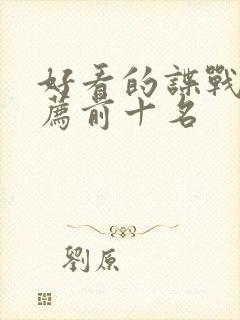 好看的諜戰
薦前十名
劉原